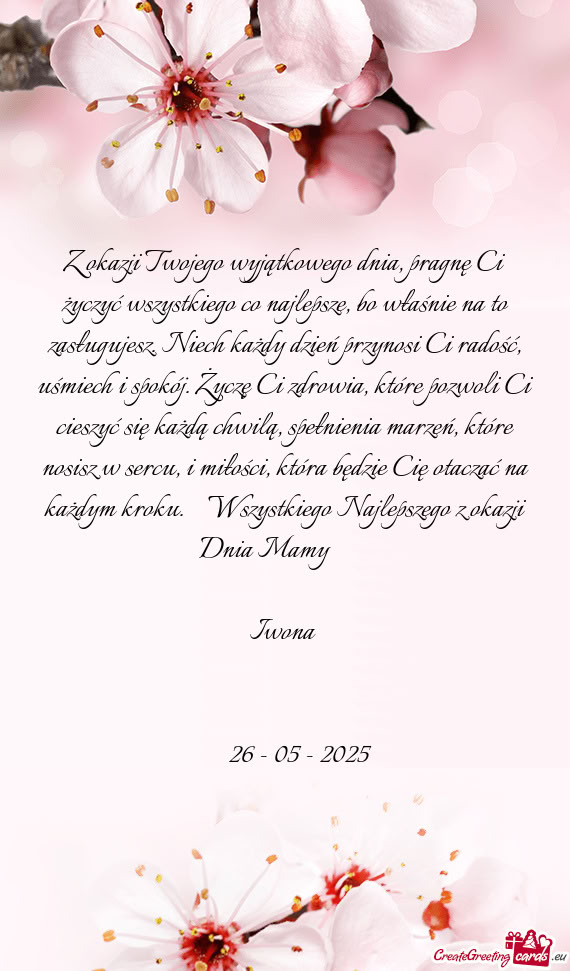 Z okazji Twojego wyjątkowego dnia, pragnę Ci
życzyć wszystkiego co najlepsze, bo właśnie na to
zasługujesz. Niech każdy dzień przynosi Ci radość,
uśmiech i spokój. Życzę Ci zdrowia, które pozwoli Ci
cieszyć się każdą chwilą, spełnienia marzeń, które
nosisz w sercu, i miłości, która będzie Cię otaczać na
każdym kroku. Wszystkiego Najlepszego z okazji
Dnia Mamy
Iwona
26 - 05 - 2025
CreateGreeting cards .eu